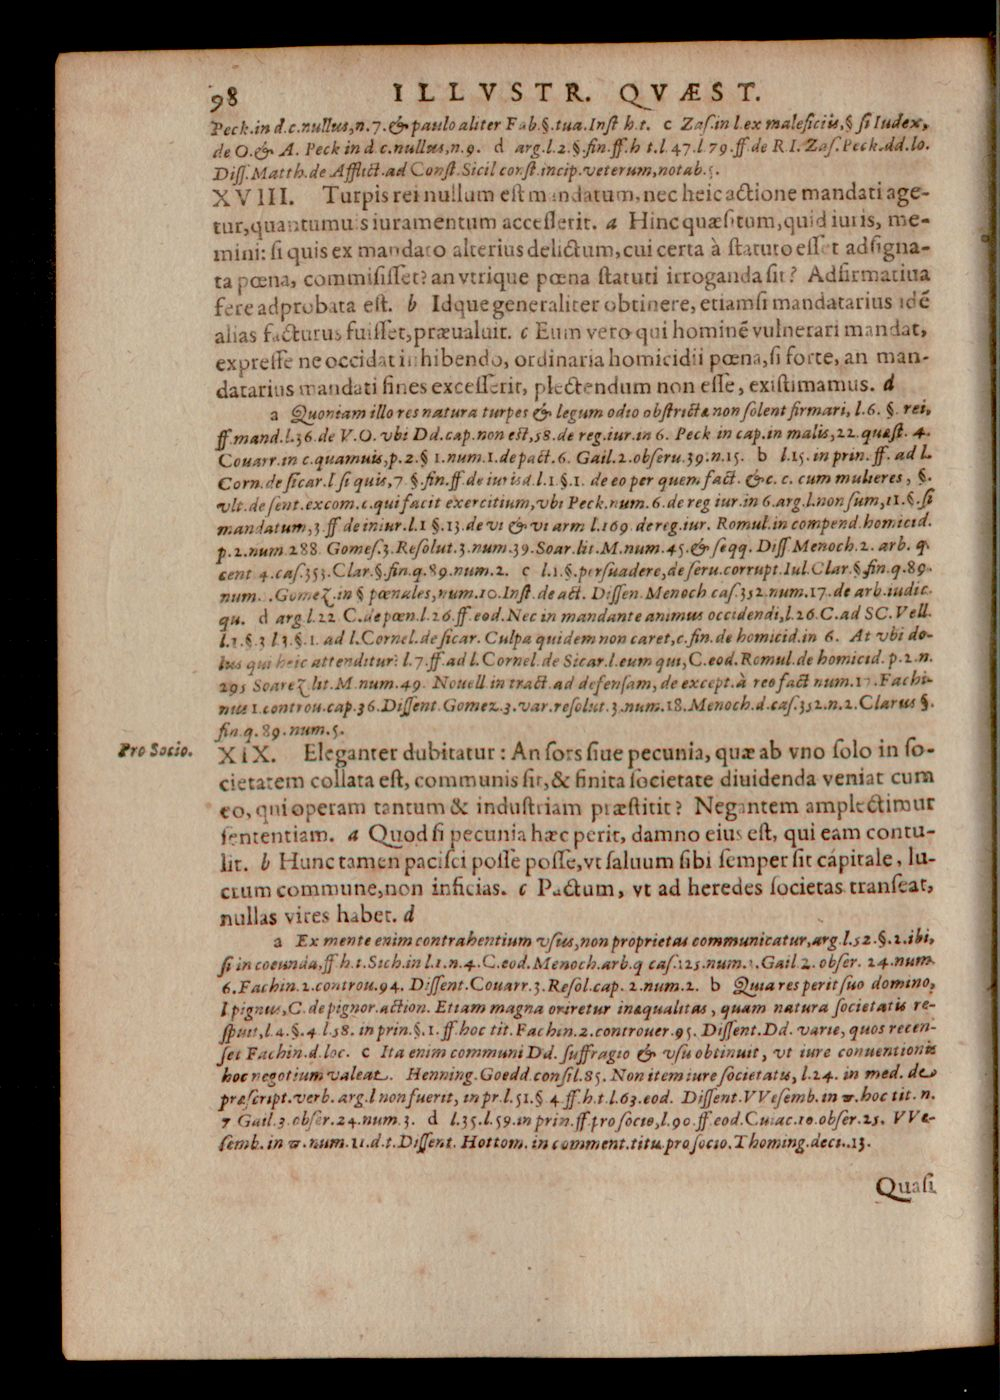 98 ILLVSTR. QVÆST.
Peck.in d.c.nullus,n.7.& paulo aliter Fab.§.tua.Inst h.t. c Zas.in l.ex maleficiis,§ si Iudex,
de O.& A. Peck in d c.nullus,n.9. d arg.l.2.§.fin.ff.h t.l.47.l 79.ff.de R I. Zas.Peck.dd.lo.
Diss.Matth.de Afflict.ad Const.Sicil const.incip.veterum,notab.5.
XVIII. Turpis rei nullum est mandatum, nec heic actione mandati age-
tur,quantumuis iuramentum accesserit. a Hinc quæsitum,quid iuris, me-
mini: si quis ex mandato alterius delictum,cui certa à statuto esset adsigna-
ta pœna, commisisset? an vtrique pœna statuti irroganda sit? Adfirmatiua
fere adprobata est. b Idque generaliter obtinere,etiamsi mandatarius idē
alias facturus fuisset,præualuit. c Eum vero qui hominē vulnerari mandat,
expresse ne occidat inhibendo, ordinaria homicidii pœna,si forte, an man-
datarius mandati fines excesserit, plectendum non esse, existimamus. d
a Quoniam illo res natura turpes & legum odio obstrictæ non solent firmari, l.6. §. rei,
ff.mand.l.36.de V.O. vbi Dd.cap.non est,58.de reg.iur.in 6. Peck in cap.in malis,22.quæst. 4.
Couarr.in c.quamuis,p.2.§ 1.num.1.de pact.6. Gail.2.obseru.39.n.15. b l.15.in prin.ff. ad l.
Corn.de sicar.l si quis,7 §.fin.ff.de iurisd.l.1.§.1. de eo per quem fact. &c. c. cum mulieres, §.
vlt.de sent.excom.c.qui facit exercitium,vbi Peck.num.6.de reg iur.in 6.arg.l.non sum,11.§.si
mandatum,3 ff de iniur.l.1 §.13.de vi & vi arm l.169 de reg.iur. Romul.in compend.homicid.
p.2.num 288 Gomes.3.Resolut.3.num.39.Soar.lit.M.num.45.& seqq. Diss Menoch.2. arb. q.
cent 4.cas.353.Clar.§.fin.q.89.num.2. c l.1.§.persuadere,de seru.corrupt.Iul.Clar.§.fin.q.89.
num. .Gomez.in § pœnales,num.10.Inst.de act. Dissen.Menoch cas.352.num.17.de arb.iudic.
qu. d arg.l.22 C.de pœn.l.26.ff.eod.Nec in mandante animus occidendi,l.26.C.ad SC.Vell.
l.1.§.3 l3.§.1. ad l.Cornel.de sicar. Culpa quidem non caret,c.fin.de homicid.in 6. At vbi do-
lus qui heic attenditur? l.7.ff.ad l.Cornel.de Sicar.l.eum qui,C.eod.Romul.de homicid. p.2.n.
295 Soarez lit.M.num.49. Nouell.in tract.ad defensam,de except.à reo fact num.17.Fachi-
nius 1.controu.cap.36.Dissent.Gomez.3.var.resolut.3.num.18.Menoch.d.cas.352.n.2.Clarus §.
fin.q.89.num.5.
Pro Socio. XIX. Eleganter dubitatur: An sors siue pecunia, quæ ab vno solo in so-
cietatem collata est, communis sit,& finita societate diuidenda veniat cum
eo,qui operam tantum & industriam præstitit? Negantem amplectimur
sententiam. a Quod si pecunia hæc perit, damno eius est, qui eam contu-
lit. b Hunc tamen pacisci posse posse,vt saluum sibi semper sit capitale, lu-
crum commune,non inficias. c Pactum, vt ad heredes societas transeat,
nullas vires habet. d
a Ex mente enim contrahentium vsus,non proprietas communicatur,arg.l.52.§.2.ibi,
si in coeunda,ff h.t.Sich.in l.1.n.4.C.eod.Menoch.arb.q cas.125.num. .Gail 2. obser. 24.num.
6.Fachin.2.controu.94. Dissent.Couarr.3.Resol.cap. 2.num.2. b Quia res perit suo domino,
l pignus,C.de pignor.action. Etiam magna oriretur inæqualitas, quam natura societatis re-
spuit,l.4.§.4 l 58. in prin.§.1.ff hoc tit.Fachin.2.controuer.95. Dissent.Dd. varie, quos recen-
set Fachin.d.loc. c Ita enim communi Dd. suffragio & vsu obtinuit, vt iure conuentionis
hoc negotium valeat. Henning.Goedd consil.85. Non item iure societatis, l.24. in med. de
præscript.verb. arg.l non fuerit, in pr.l.51.§ 4.ff.h.t.l.63.eod. Dissent.VVesemb.in π.hoc tit.n.
7 Gail.3.obser.24.num.3. d l.35.l.59.in prin.ff.pro socio,l.90.ff.eod.Cuiac.10.obser.25. VVe-
semb.in π.num.11.d.t.Dissent. Hottom. in comment.titu.pro socio.Thoming.deci..13.
Quasi